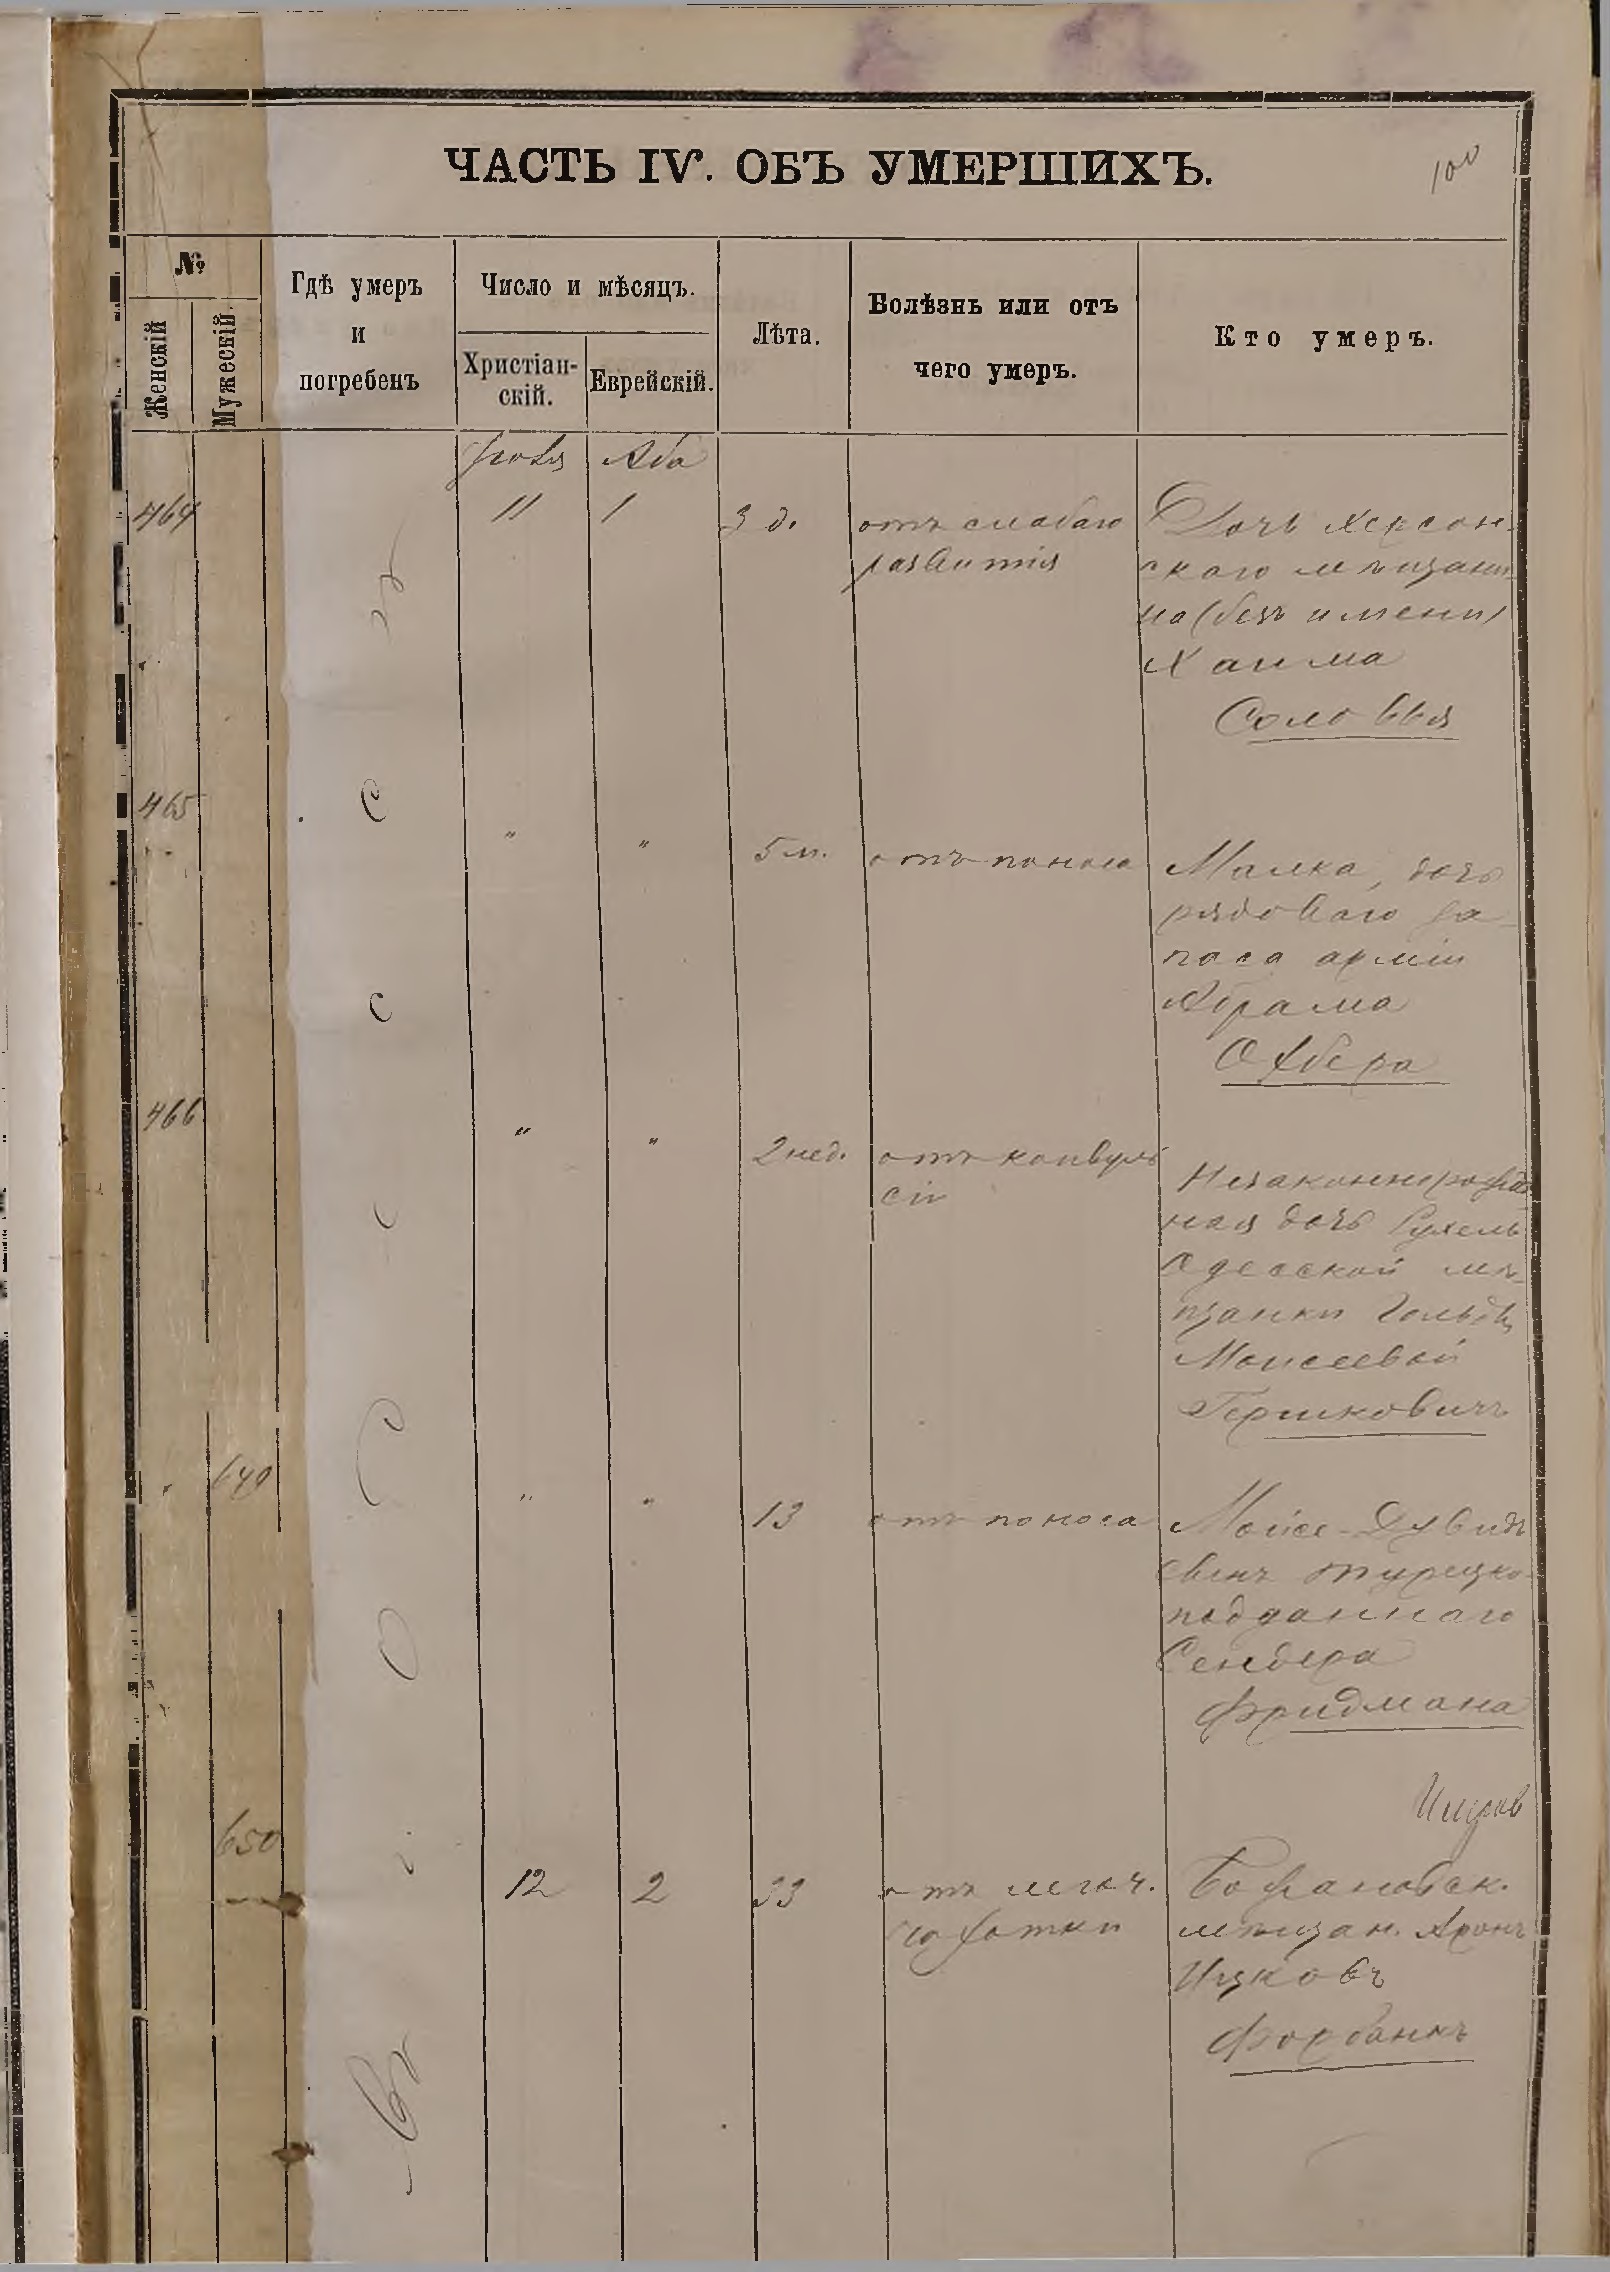 ЧАСТЬ IV. ОБЪ УМЕРШИХЪ.
100
№
Женскій
Мужескій.
Гдѣ умеръ
и
погребенъ
Число и мѣсяцъ.
Христіан-
скій.
Еврейскій.
Лѣта.
Болѣзнь или отъ
чего умеръ.
Кто умеръ.
Аба
464
11
1
3 д.
отъ слабаго
развитія
Дочь херсон-
скаго мѣщани-
на (безъ имени)
Хаима
Соловья
465
"
"
5 м.
отъ поноса
Малка, дочь
рядоваго за-
паса арміи
Абрама
466
"
"
2 нед.
отъ конвуль
сій
Незаконнорожден
ная дочь Рухель
Одесской мѣ-
щанки Гольды
Моисеевой
Гершковичъ
649
"
"
13
отъ поноса
Мойсе-Дувидъ
сынъ турецко-
подданнаго
Сендера
Фридмана
650
12
2
33
отъ легоч.
чахотки
мѣщан. Аронъ
Ицковъ
Форбанъ
Одессѣ